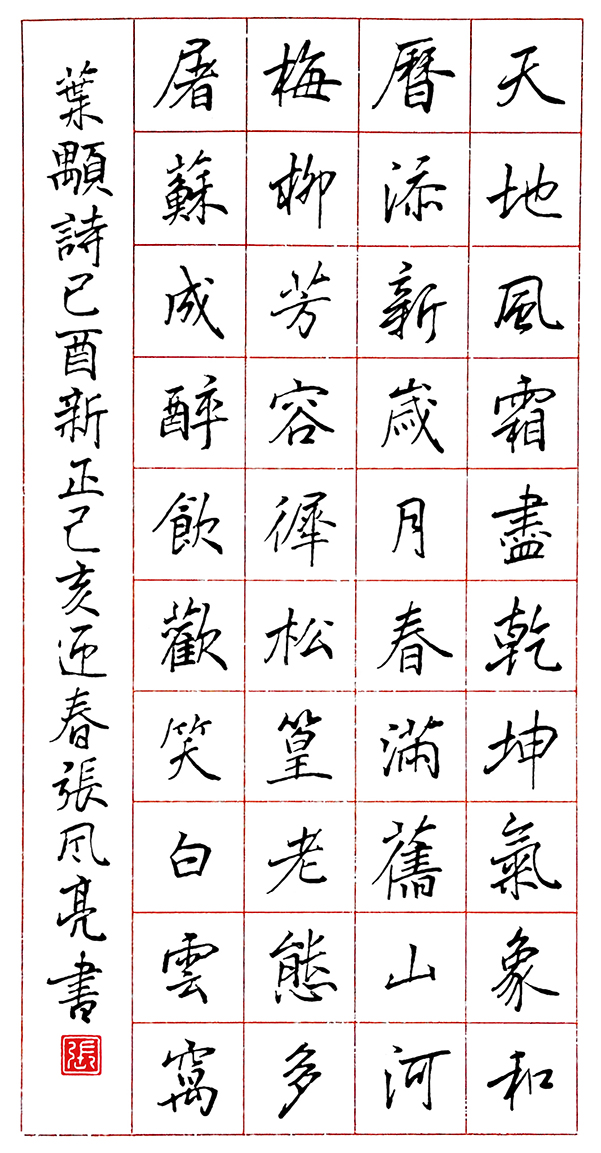 天地風霜盡乾坤氣象和
曆添新歲月春滿舊山河
梅柳芳容徲松篁老態多
屠蘇成醉飲歡笑白雲窩
葉顒詩己酉新正己亥迎春張风亮書
張